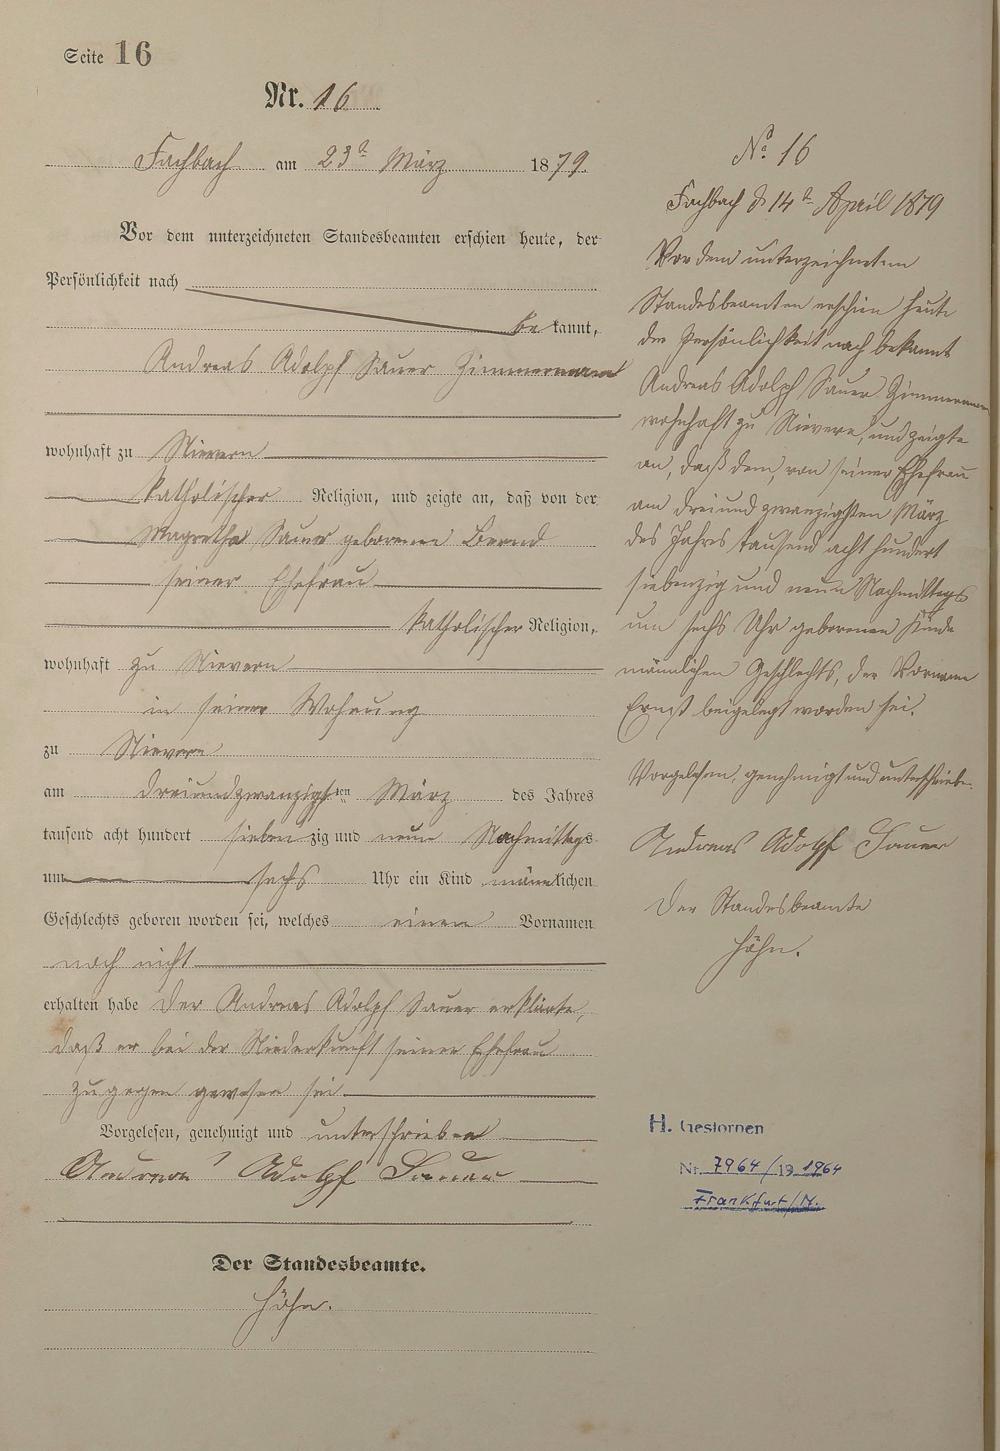 Seite 16
Nr. 16
Fachbach am 23t März 1879.
Vor dem unterzeichneten Standesbeamten erschien heute, der
Persönlichkeit nach
be kannt,
Andreas Adolph Sauer Zimmermann
wohnhaft zu Nievern
katholischer Religion, und zeigte an, daß von der
Magretha Sauer geborenen Bernd
seiner Ehefrau
katholischer Religion,
wohnhaft zu Nievern
in seiner Wohnung
zu Nievern
am dreiundzwanzigsten März des Jahres
tausend acht hundert sieben zig und neun Nachmittags
um sechs Uhr ein Kind männlichen
Geschlechts geboren worden sei, welches einen Vornamen
noch nicht
erhalten habe Der Andreas Adolph Sauer erklärte,
daß er bei der Niederkunft seiner Ehefrau
zugegen gewesen sei.
Vorgelesen, genehmigt und unterschrieben
Andreas Adolph Sauer
Der Standesbeamte.
Höhn.
No. 16
Fachbach d. 14t April 1879
Vor dem unterzeichnetem
Standesbeamten erschien heute
der Persönlichkeit nach bekannt
Andreas Adolph Sauer Zimmermann
wohnhaft zu Nievern, und zeigte
an, daß dem, von seiner Ehefrau
am dreiund zwanzigsten März
des Jahres tausend acht hundert
siebenzig und neun Nachmittags
um sechs Uhr geborenen Kinde
männlichen Geschlechts, der Vorname
Ernst beigelegt worden sei.
Vorgelesen, genehmigt und unterschrieben.
Andreas Adolph Sauer
Der Standesbeamte
Höhn.
H. Gestorben
Nr. 7964/19 1964
Frankfurt/M.